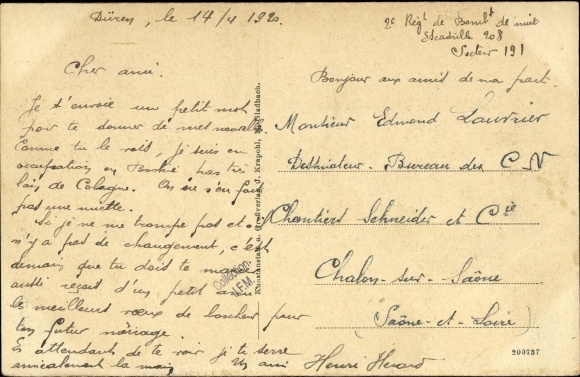 Düren, le 14/4 1920
2e Régt de Bombt de nuit
Escadrille 208
Secteur 191
Cher ami.
Je t'envoie un petit mot
pour te donner de mes nouvelles
Comme tu le vois, je suis en
occupation en Bochie pas très
loin de Cologne. On s'en fait
pas une miette.
Si je ne me trompe pas et
n'y a pas de changement, c'est
demain que tu dois te marier
aussi reçoit d'un petit ami
le meilleurs vœux de bonheur pour
ton futur mariage.
En attendant de te voir je te serre
amicalement la main Un ami Henri
Bonjour aux amis de ma part.
Monsieur Edmond Laurier
Dessinateur. Bureau des C N
Chantiers Schneider et Cie
Chalon-sur-Saône
(Saône-et-Loire)
Kunstanstalt u. Großverlag J. Krapohl, M.Gladbach.
Collection
J.F.M.
200737